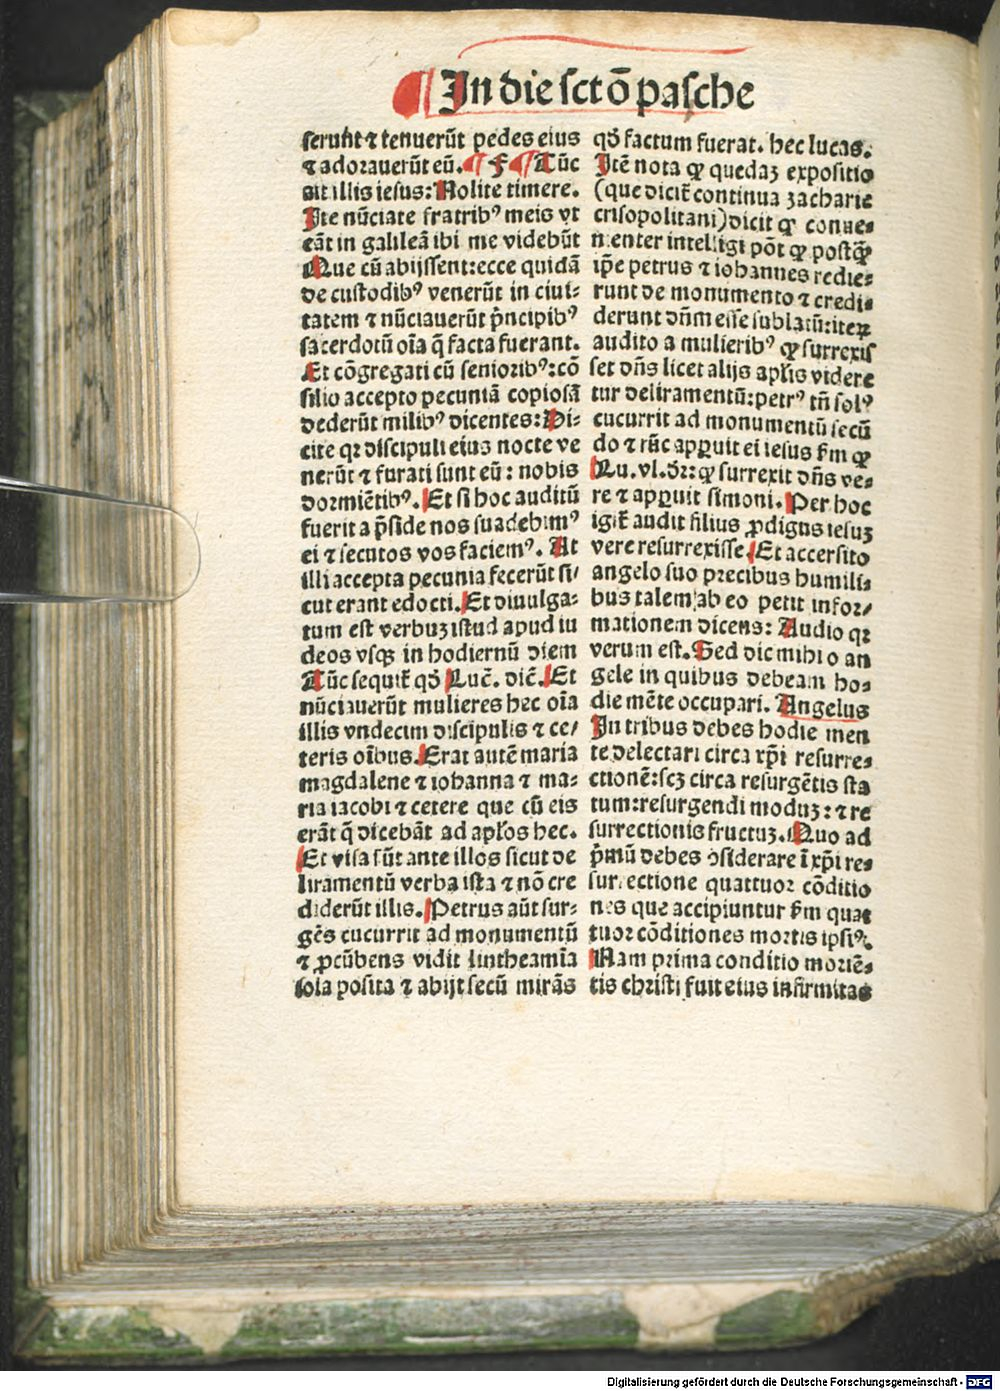 In die sctō pasche
serunt ⁊ tenuerūt pedes eius
⁊ adorauerūt eū. ¶ F ¶ Tūc
ait illis iesus: Nolite timere.
Ite nūciate fratribꝰ meis vt
eāt in galileā ibi me videbūt
Que cū abijssent: ecce quidā
de custodibꝰ venerūt in ciui⸗
tatem ⁊ nūciauerūt pͥncipibꝰ
sacerdotū oīa q̄ facta fuerant.
Et cōgregati cū senioribꝰ: cō
silio accepto pecuniā copiosā
dederūt militibꝰ dicentes: Di⸗
cite qꝛ discipuli eius nocte ve
nerūt ⁊ furati sunt eū: nobis
dormiētibꝰ. Et si hoc auditū
fuerit a p̄side nos suadebimꝰ
ei ⁊ secutos vos faciemꝰ. At
illi accepta pecunia fecerūt si/
cut erant edocti. Et diuulga⸗
tum est verbuꝫ istud apud iu
deos vsqꝫ in hodiernū diem
Tūc sequit̄ qḋ Luc̄. dic̄. Et
nūciauerūt mulieres hec oīa
illis vndecim discipulis ⁊ ce/
teris oībus. Erat autē maria
magdalene ⁊ iohanna ⁊ ma⸗
ria iacobi ⁊ cetere que cū eis
erāt q̄ dicebāt ad apłos hec.
Et visa sūt ante illos sicut de
liramentū verba ista ⁊ nō cre
diderūt illis. Petrus aūt sur⸗
gēs cucurrit ad monumentū
⁊ ꝓcūbens vidit lintheamīa
sola posita ⁊ abijt secū mirās
qḋ factum fuerat. hec lucas.
Itē nota ꝙ quedaꝫ expositio
(que dicit̄ continua zacharie
crisopolitani) dicit ꝙ conue⸗
nienter intelligi pōt ꝙ postꝙ̄
ip̄e petrus ⁊ iohannes redie⸗
runt de monumento ⁊ credi⸗
derunt dn̄m esse sublatū: iteꝝ
audito a mulieribꝰ ꝙ surrexis
set dn̄s licet alijs apl̄is videre
tur deliramentū: petrꝰ tn̄ solꝰ
cucurrit ad monumentū secū
do ⁊ tūc apꝑuit ei iesus ẜm ꝙ
Lu. vl. dꝛ: ꝙ surrexit dn̄s ve⸗
re ⁊ apꝑuit simoni. Per hoc
igit̄ audit filius ꝓdigus iesuꝫ
vere resurrexisse. Et accersito
angelo suo precibus humili⸗
bus talem ab eo petit infor/
mationem dicens: Audio qꝛ
verum est. Sed dic mihi o an
gele in quibus debeam ho⸗
die mēte occupari. Angelus
In tribus debes hodie men
te delectari circa xp̄i resurre⸗
ctionē: scꝫ circa resurgētis sta
tum: resurgendi moduꝫ: ⁊ re
surrectionis fructuꝫ. Quo ad
pͥmū debes ꝯsiderare ī xp̄i re⸗
surrectione quattuor cōditio
nes que accipiuntur ẜm quat
tuor cōditiones mortis ipsiꝰ.
Nam prima conditio moriē⸗
tis christi fuit eius infirmitas
Digitalisierung gefördert durch die Deutsche Forschungsgemeinschaft - DFG